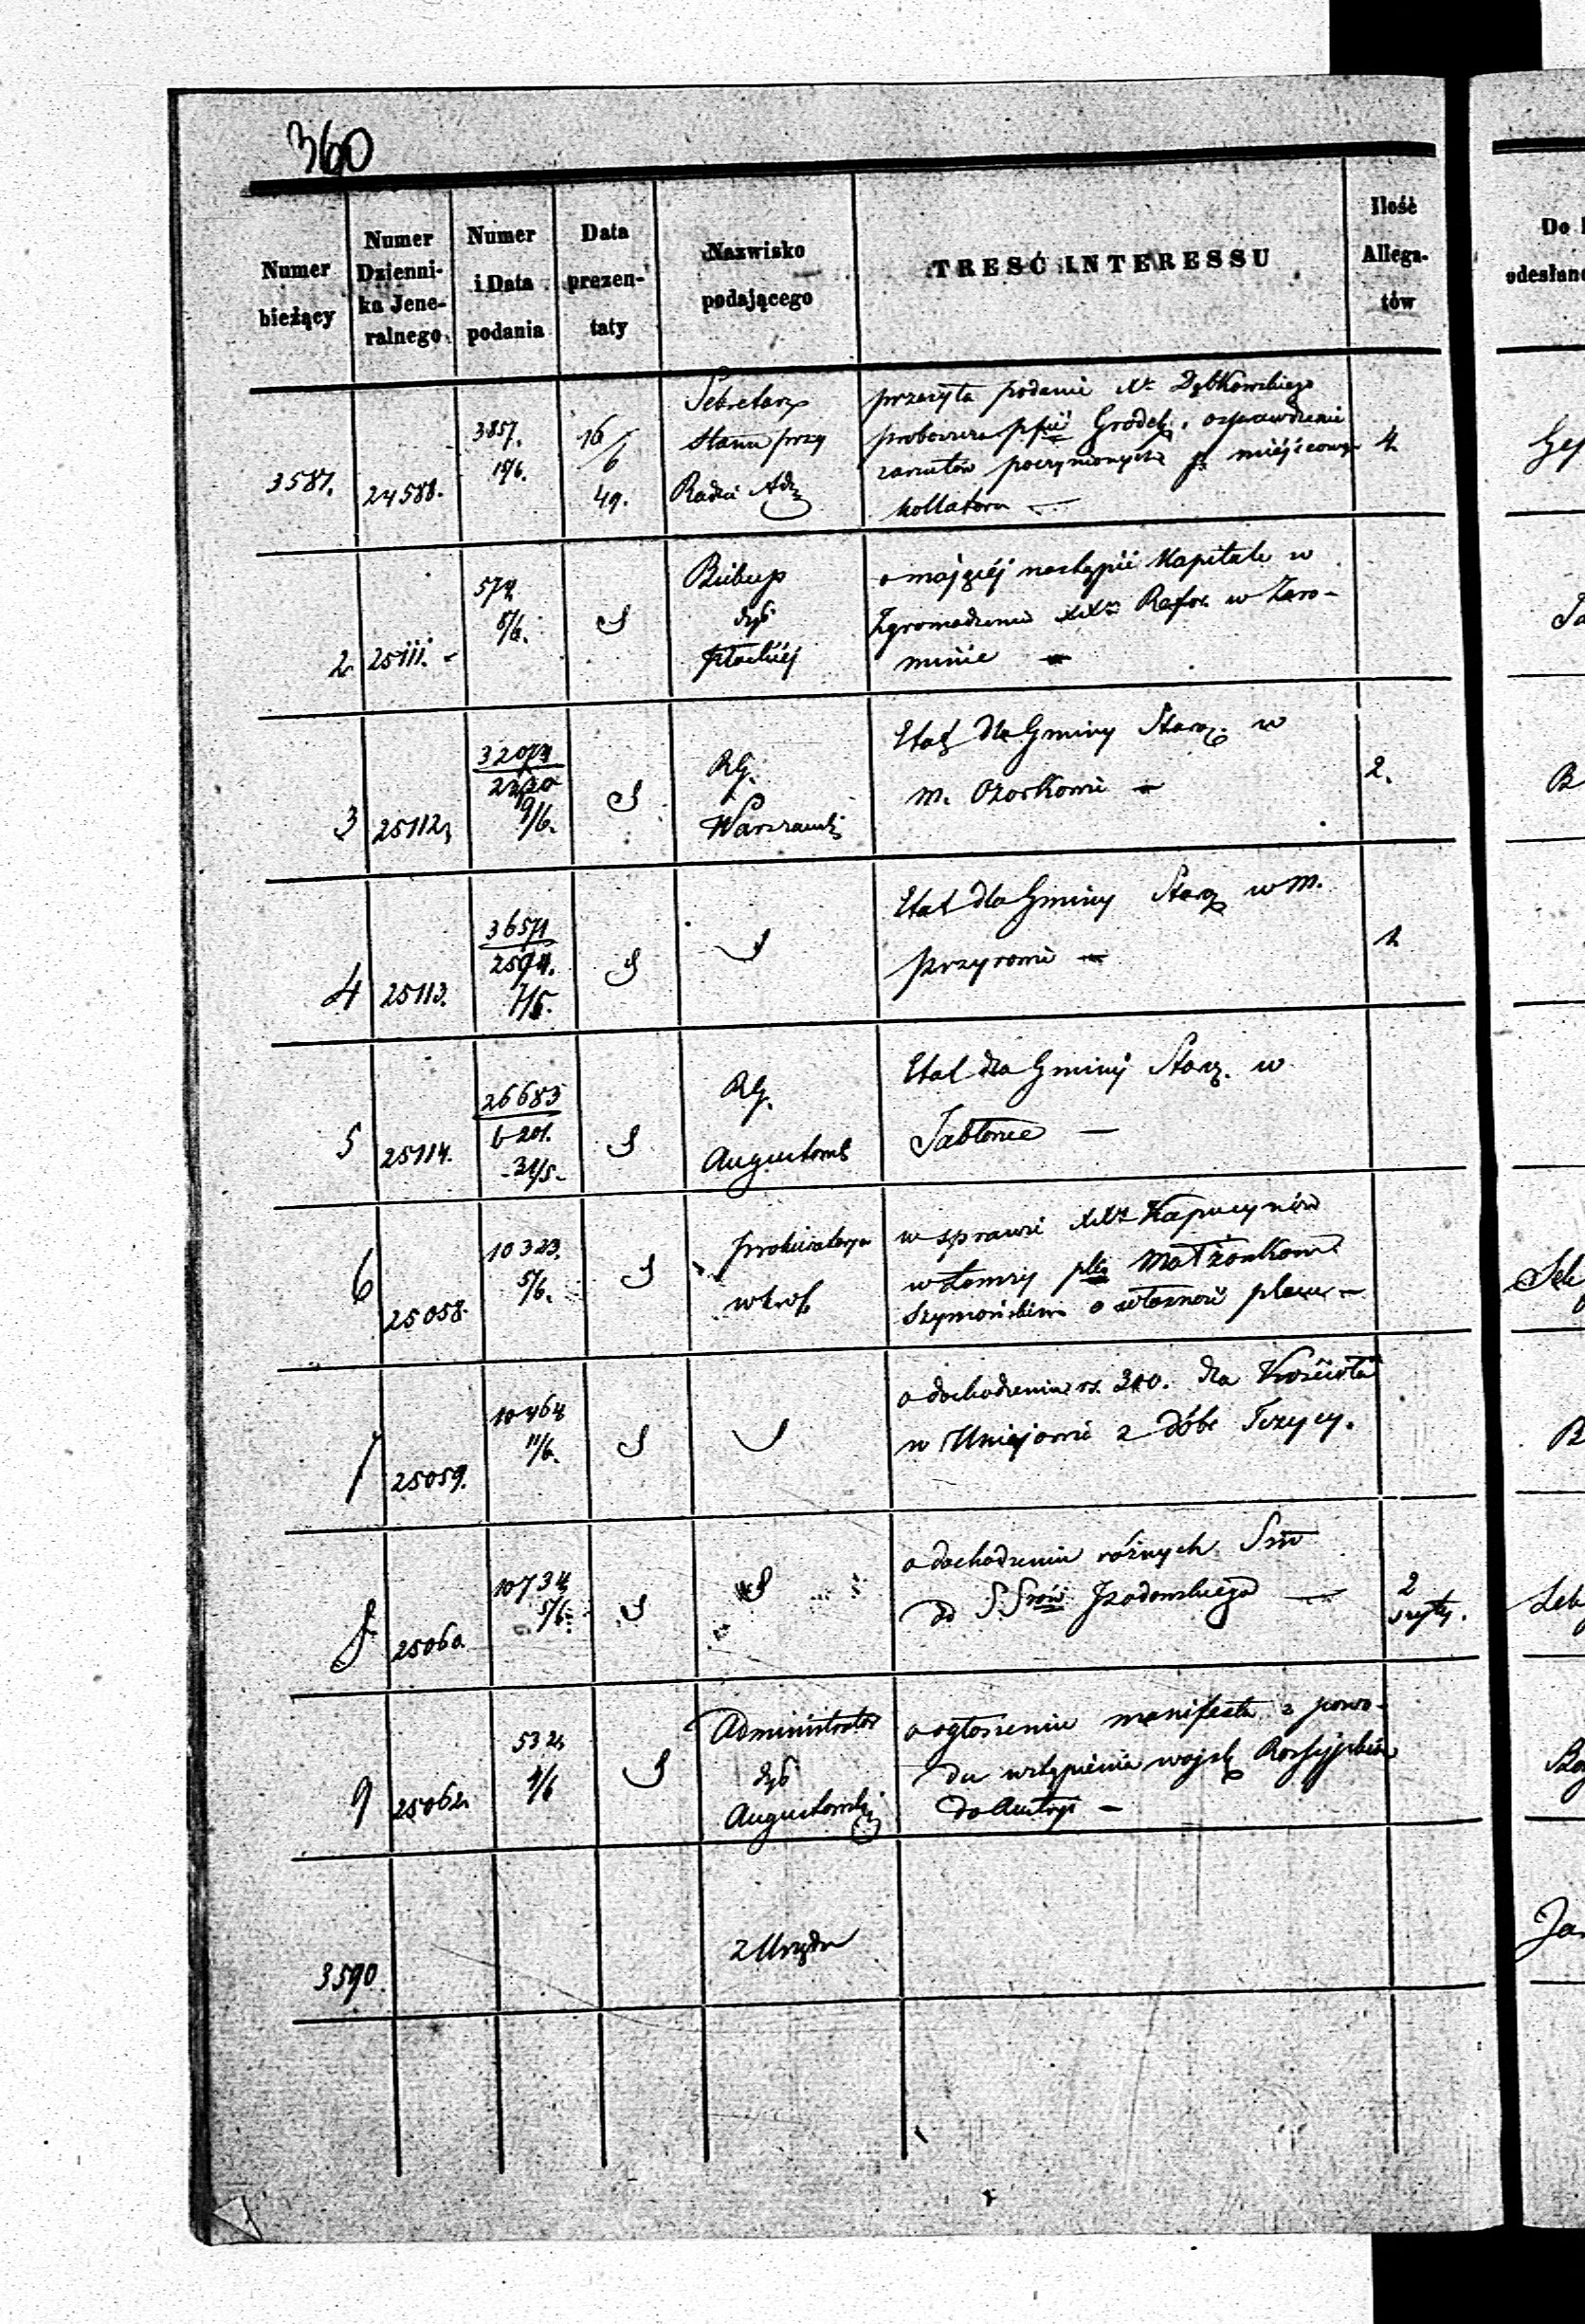 360
Numer bieżący
Numer Dzienni- ka Jene- ralnego
Numer i Data podania
Data prezen- taty
Nazwisko podającego
TREŚĆ INTERESSU
Ilość Allega- tów
Do
odesłano
3581.
24588.
3857.
16/6 49.
Sekretarz
Stanu przy
Radzie Adz
przesyła podanie Xa Dąbkowskiego
proboszcza Grodek. o sprawdzenie
zarzutów poczynionych pz miejscowego
kollatora —
2
25111.
574
8/6.
Biskup
dyö
płockiej
o mającej nastąpić Kapitule w
Zgromadzeniu XXży Refor. w Żuro-
minie —
3
25112
32074
2220
9/6.
RG.
Warszawski
Etat dla Gminy Staroz. w
m. Ozorkowie —
2.
4
25113.
36571
2594.
7/6.
Etat dla Gminy Staroz w m.
przyrowie —
1
5
25114.
26683
6201.
31/5.
RG.
Augustows
Etat dla Gminy Staroz. w
Jabłonce —
6
25058.
10323.
5/6.
prokuratorya
w krols
w sprawie XXży Kapucynów
w Łomży pko Małżonkom
Szymońskim o własność placu —
7
25059.
10464
11/6.
o dochodzeniu rs. 300. dla Kościoła
w Uniejowie z dóbr Tczycy.
8
25060.
10734
5/6.
o dochodzeniu różnych Sm
do SSrów Izadowskiego —
2
szyty.
9
25062
532
4/6
Administrator
dyö
Augustowski
o ogłoszeniu manifestu z powo-
du wstąpienia wojsk Rossyjskich
do Austryi —
3590.
z Urzędu